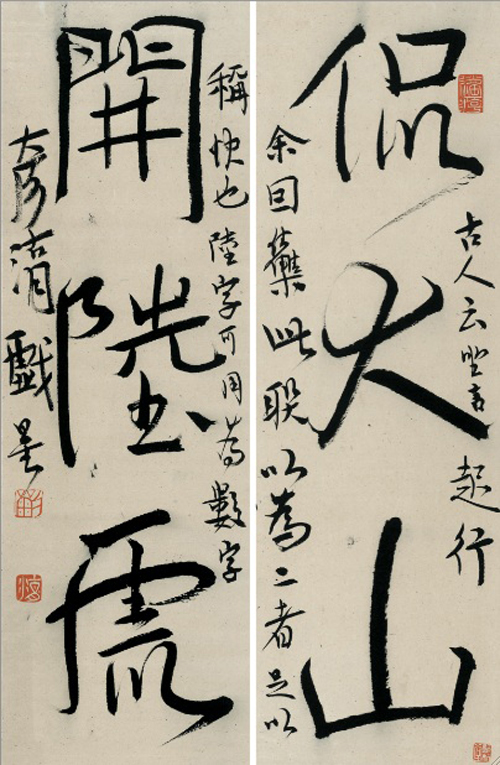 侃大山
古人云坐言起行
余因集此联以為二者足以
開陸虎
稱快也陸字可用為數字
清戲墨